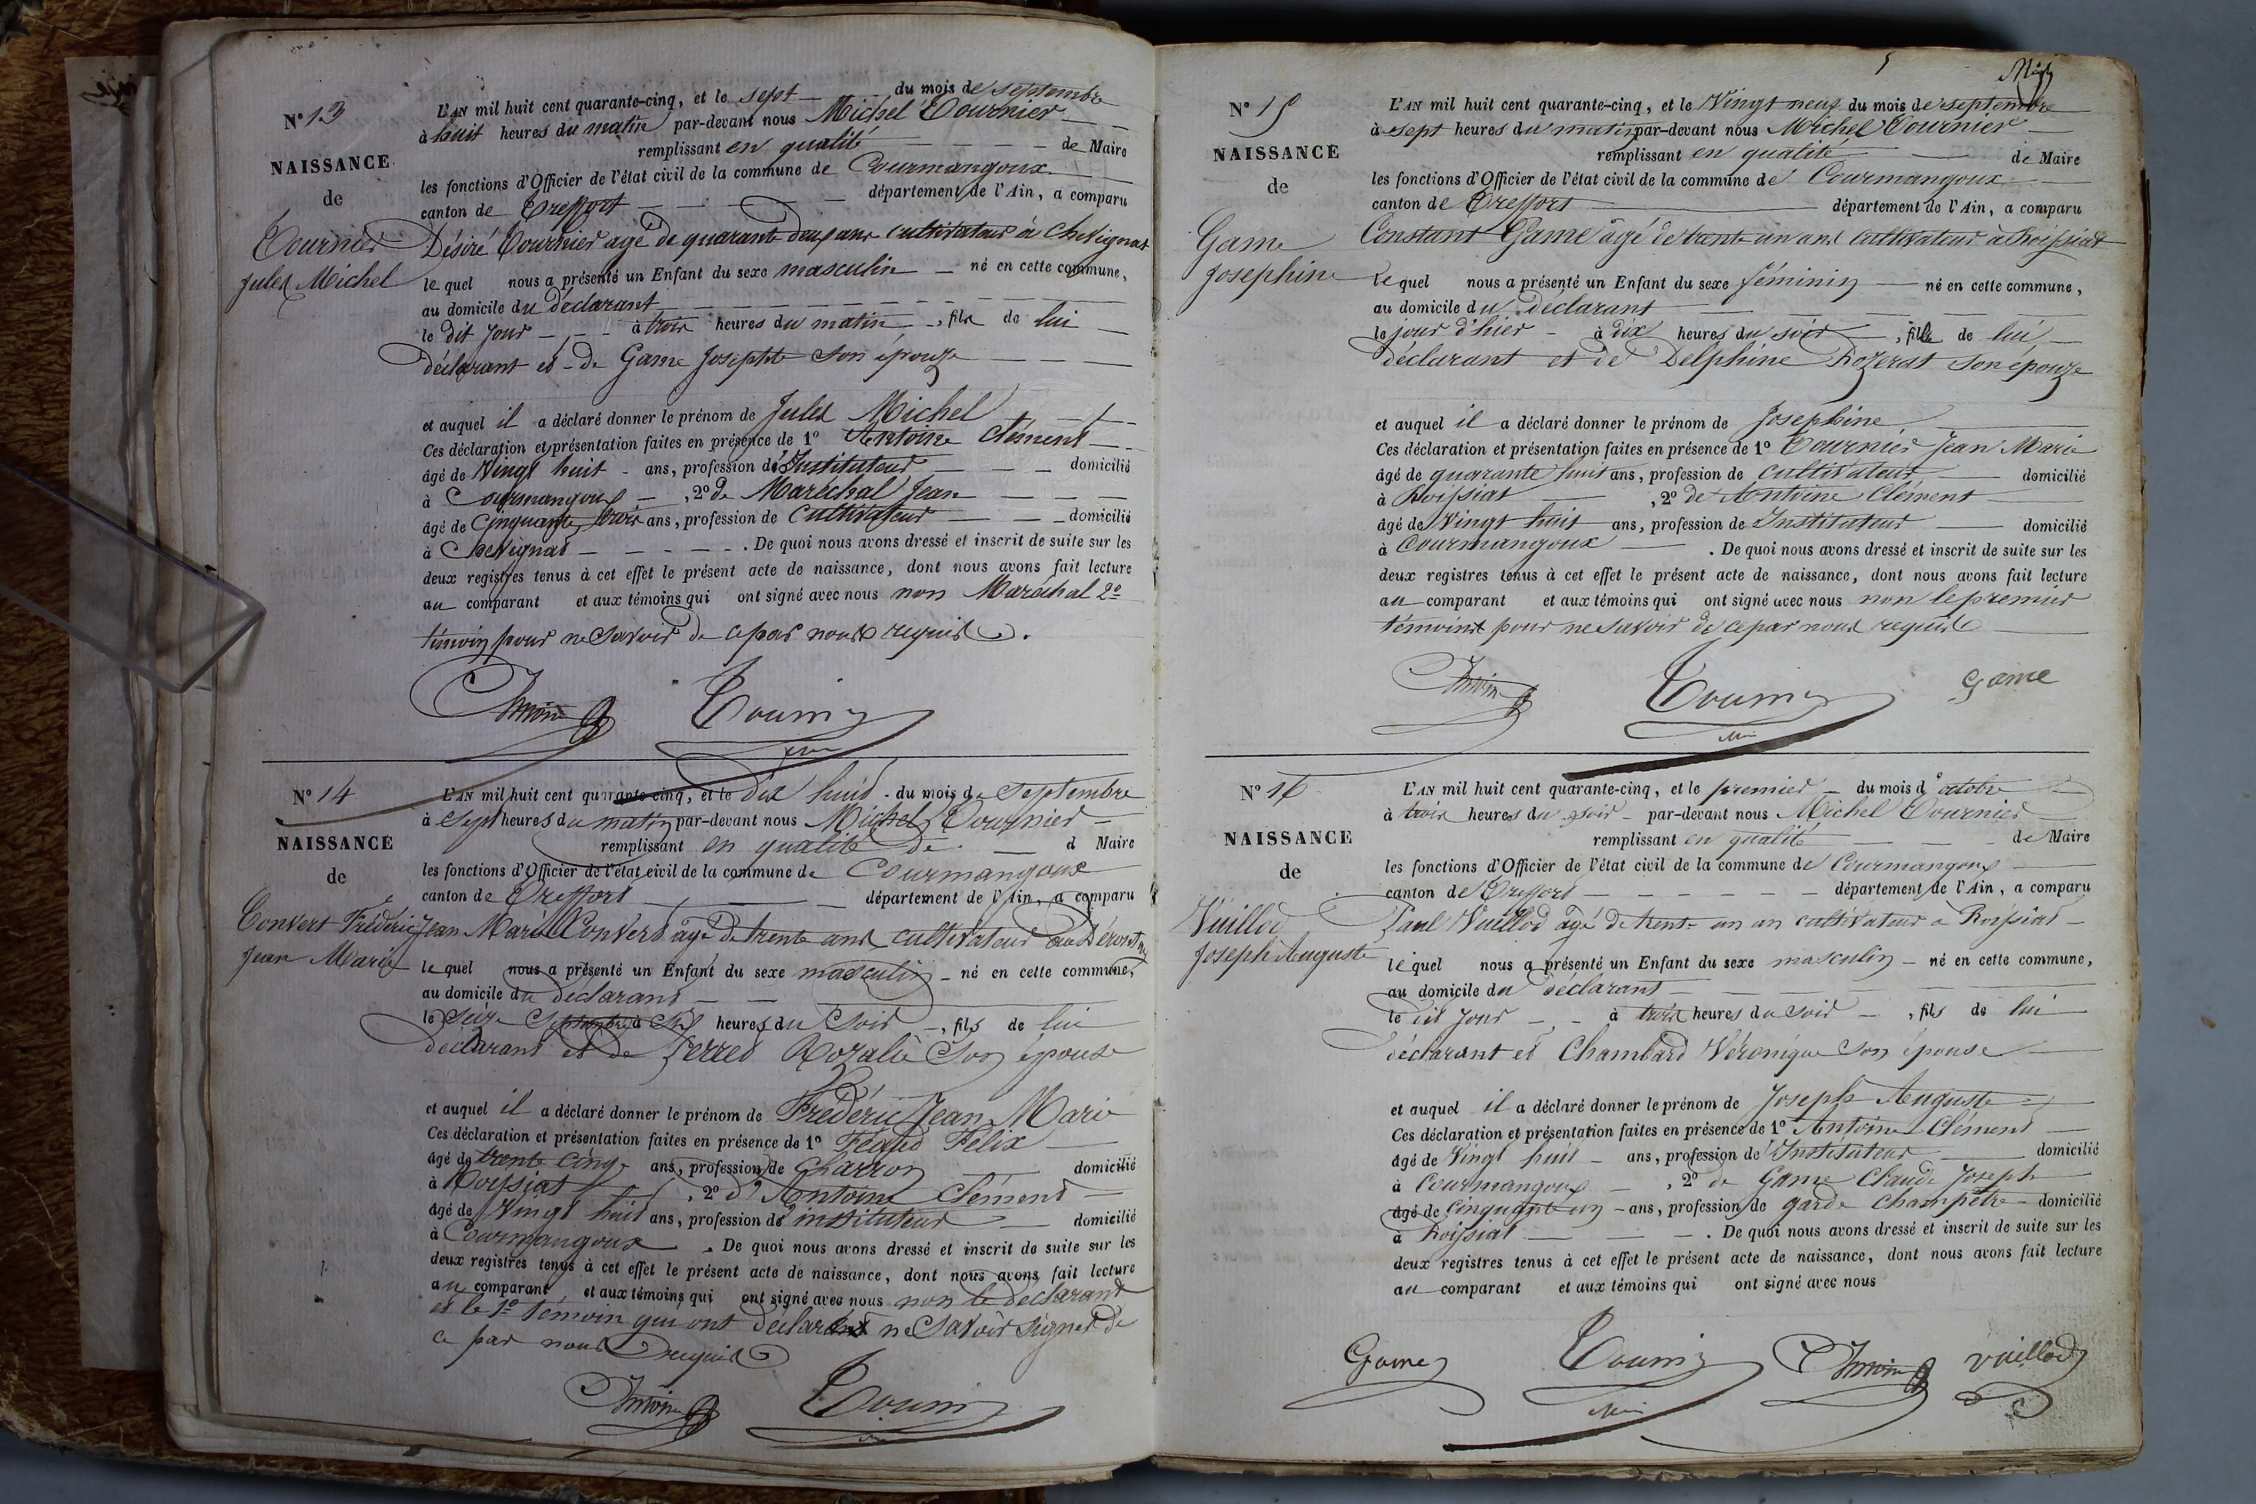 N° 13
NAISSANCE
de
Tournier
Jules Michel
L'AN mil huit cent quarante-cinq, et le sept du mois de septembre
à huit heures du matin par-devant nous Michel Tournier
remplissant en qualité de Maire
les fonctions d'Officier de l'état civil de la commune de Courmangoux
canton de Treffort département de l'Ain, a comparu
Désiré Tournier agé de quarante deux ans cultivateur à Chevignat
le quel nous a présenté un Enfant du sexe masculin né en cette commune,
au domicile du déclarant
le dit jour à trois heures du matin, fils de lui
déclarant et de Game Josephte son épouze
et auquel il a déclaré donner le prénom de Jules Michel
Ces déclaration et présentation faites en présence de 1° Antoine Clément
âgé de Vingt huit ans, profession d'Instituteur domicilié
à Courmangoux, 2° de Maréchal Jean
âgé de Cinquante trois ans, profession de Cultivateur domicilié
à Chevignat. De quoi nous avons dressé et inscrit de suite sur les
deux registres tenus à cet effet le présent acte de naissance, dont nous avons fait lecture
au comparant et aux témoins qui ont signé avec nous non Maréchal 2°
témoin pour ne savoir de ce par nous requis.
Antoine Tournier
N° 14
NAISSANCE
de
Convert Frédéric
Jean Marie
L'AN mil huit cent quarante-cinq, et le dix huit du mois de Septembre
à sept heures du matin par-devant nous Michel Tournier
remplissant en qualité de d Maire
les fonctions d'Officier de l'état civil de la commune de Courmangoux
canton de Treffort département de l'Ain, a comparu
Jean Marie Convert agé de trente ans cultivateur
le quel nous a présenté un Enfant du sexe masculin né en cette commune,
au domicile du déclarant
le Seize Septembre à six heures du Soir, fils de lui
déclarant et de Ferret Rozalie Son épouse
et auquel il a déclaré donner le prénom de Frédéric Jean Marie
Ces déclaration et présentation faites en présence de 1° Félix
âgé de trente cinq ans, profession de Charron domicilié
à Roissiat, 2° d'Antoine Clément
âgé de Vingt huit ans, profession d'instituteur domicilié
à Courmangoux. De quoi nous avons dressé et inscrit de suite sur les
deux registres tenus à cet effet le présent acte de naissance, dont nous avons fait lecture
au comparant et aux témoins qui ont signé avec nous non le déclarant
et le 1° témoin qui ont déclaré ne Savoir signer de
ce par nous requis
Antoine Tournier
N° 15
NAISSANCE
de
Game
Josephine
L'AN mil huit cent quarante-cinq, et le Vingt neuf du mois de septembre
à sept heures du matin par-devant nous Michel Tournier
remplissant en qualité de Maire
les fonctions d'Officier de l'état civil de la commune de Courmangoux
canton de Treffort département de l'Ain, a comparu
Constant Game agé de trente un ans cultivateur à Roissiat
le quel nous a présenté un Enfant du sexe féminin né en cette commune,
au domicile du déclarant
le jour d'hier à dix heures du soir, fille de lui
déclarant et de Delphine Rozerat son épouze
et auquel il a déclaré donner le prénom de Josephine
Ces déclaration et présentation faites en présence de 1° Tournier Jean Marie
âgé de quarante huit ans, profession de cultivateur domicilié
à Roissiat, 2° de Antoine Clément
âgé de Vingt huit ans, profession de Instituteur domicilié
à Courmangoux. De quoi nous avons dressé et inscrit de suite sur les
deux registres tenus à cet effet le présent acte de naissance, dont nous avons fait lecture
au comparant et aux témoins qui ont signé avec nous non le premier
témoins pour ne savoir de ce par nous requis
Antoine Tournier Game
N° 16
NAISSANCE
de
Vuillod
Joseph Auguste
L'AN mil huit cent quarante-cinq, et le premier du mois d'octobre
à trois heures du soir par-devant nous Michel Tournier
remplissant en qualité de Maire
les fonctions d'Officier de l'état civil de la commune de Courmangoux
canton de Treffort département de l'Ain, a comparu
Paul Vuillod agé de trente un an cultivateur à Roissiat
le quel nous a présenté un Enfant du sexe masculin né en cette commune,
au domicile du déclarant
le dit jour à trois heures du soir, fils de lui
déclarant et Chambard Véronique son épouse
et auquel il a déclaré donner le prénom de Joseph Auguste
Ces déclaration et présentation faites en présence de 1° Antoine Clément
âgé de Vingt huit ans, profession d'Instituteur domicilié
à Courmangoux, 2° de Game Claude Joseph
âgé de Cinquante un ans, profession de garde champêtre domicilié
à Roissiat. De quoi nous avons dressé et inscrit de suite sur les
deux registres tenus à cet effet le présent acte de naissance, dont nous avons fait lecture
au comparant et aux témoins qui ont signé avec nous
Game Tournier Antoine Vuillod